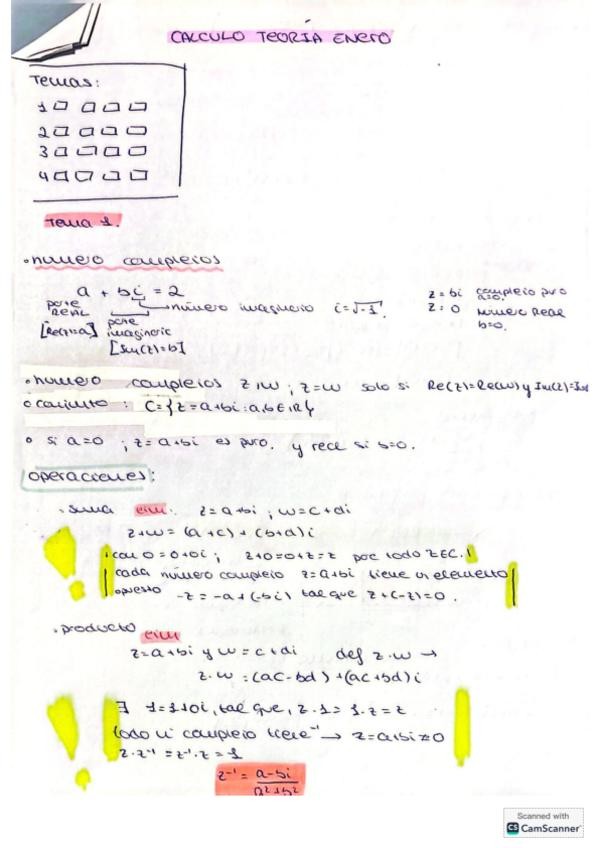 CALCULO TEORÍA ENERO
Temas:
1
2
3
4
Tema 1.
numero complejos
a + bi = z
parte REAL
[Re(z)=a]
número imaginario i=√-1
parte imaginaria
[Im(z)=b]
z = bi complejo puro
a=0.
z = 0 numero Real
b=0.
numero complejos z, w ; z=w solo si Re(z)=Re(w) y Im(z)=Im
conjunto : C={z=a+bi : a,b ∈ IR}
si a=0 ; z=a+bi es puro. y real si b=0.
operaciones:
suma z=a+bi ; w=c+di
z+w = (a+c) + (b+d)i
con 0=0+0i ; z+0=0+z=z por todo z∈C.
cada número complejo z=a+bi tiene un elemento
opuesto -z=-a+(-bi) tal que z+(-z)=0.
producto
z=a+bi y w=c+di def z·w →
z·w = (ac-bd)+(ac+bd)i
∃ 1=1+0i, tal que, z·1=1·z=z
todo nº complejo tiene⁻¹ → z=a+bi≠0
z·z⁻¹=z⁻¹·z=1
z⁻¹ = a-bi / a²+b²
Scanned with
CS CamScanner